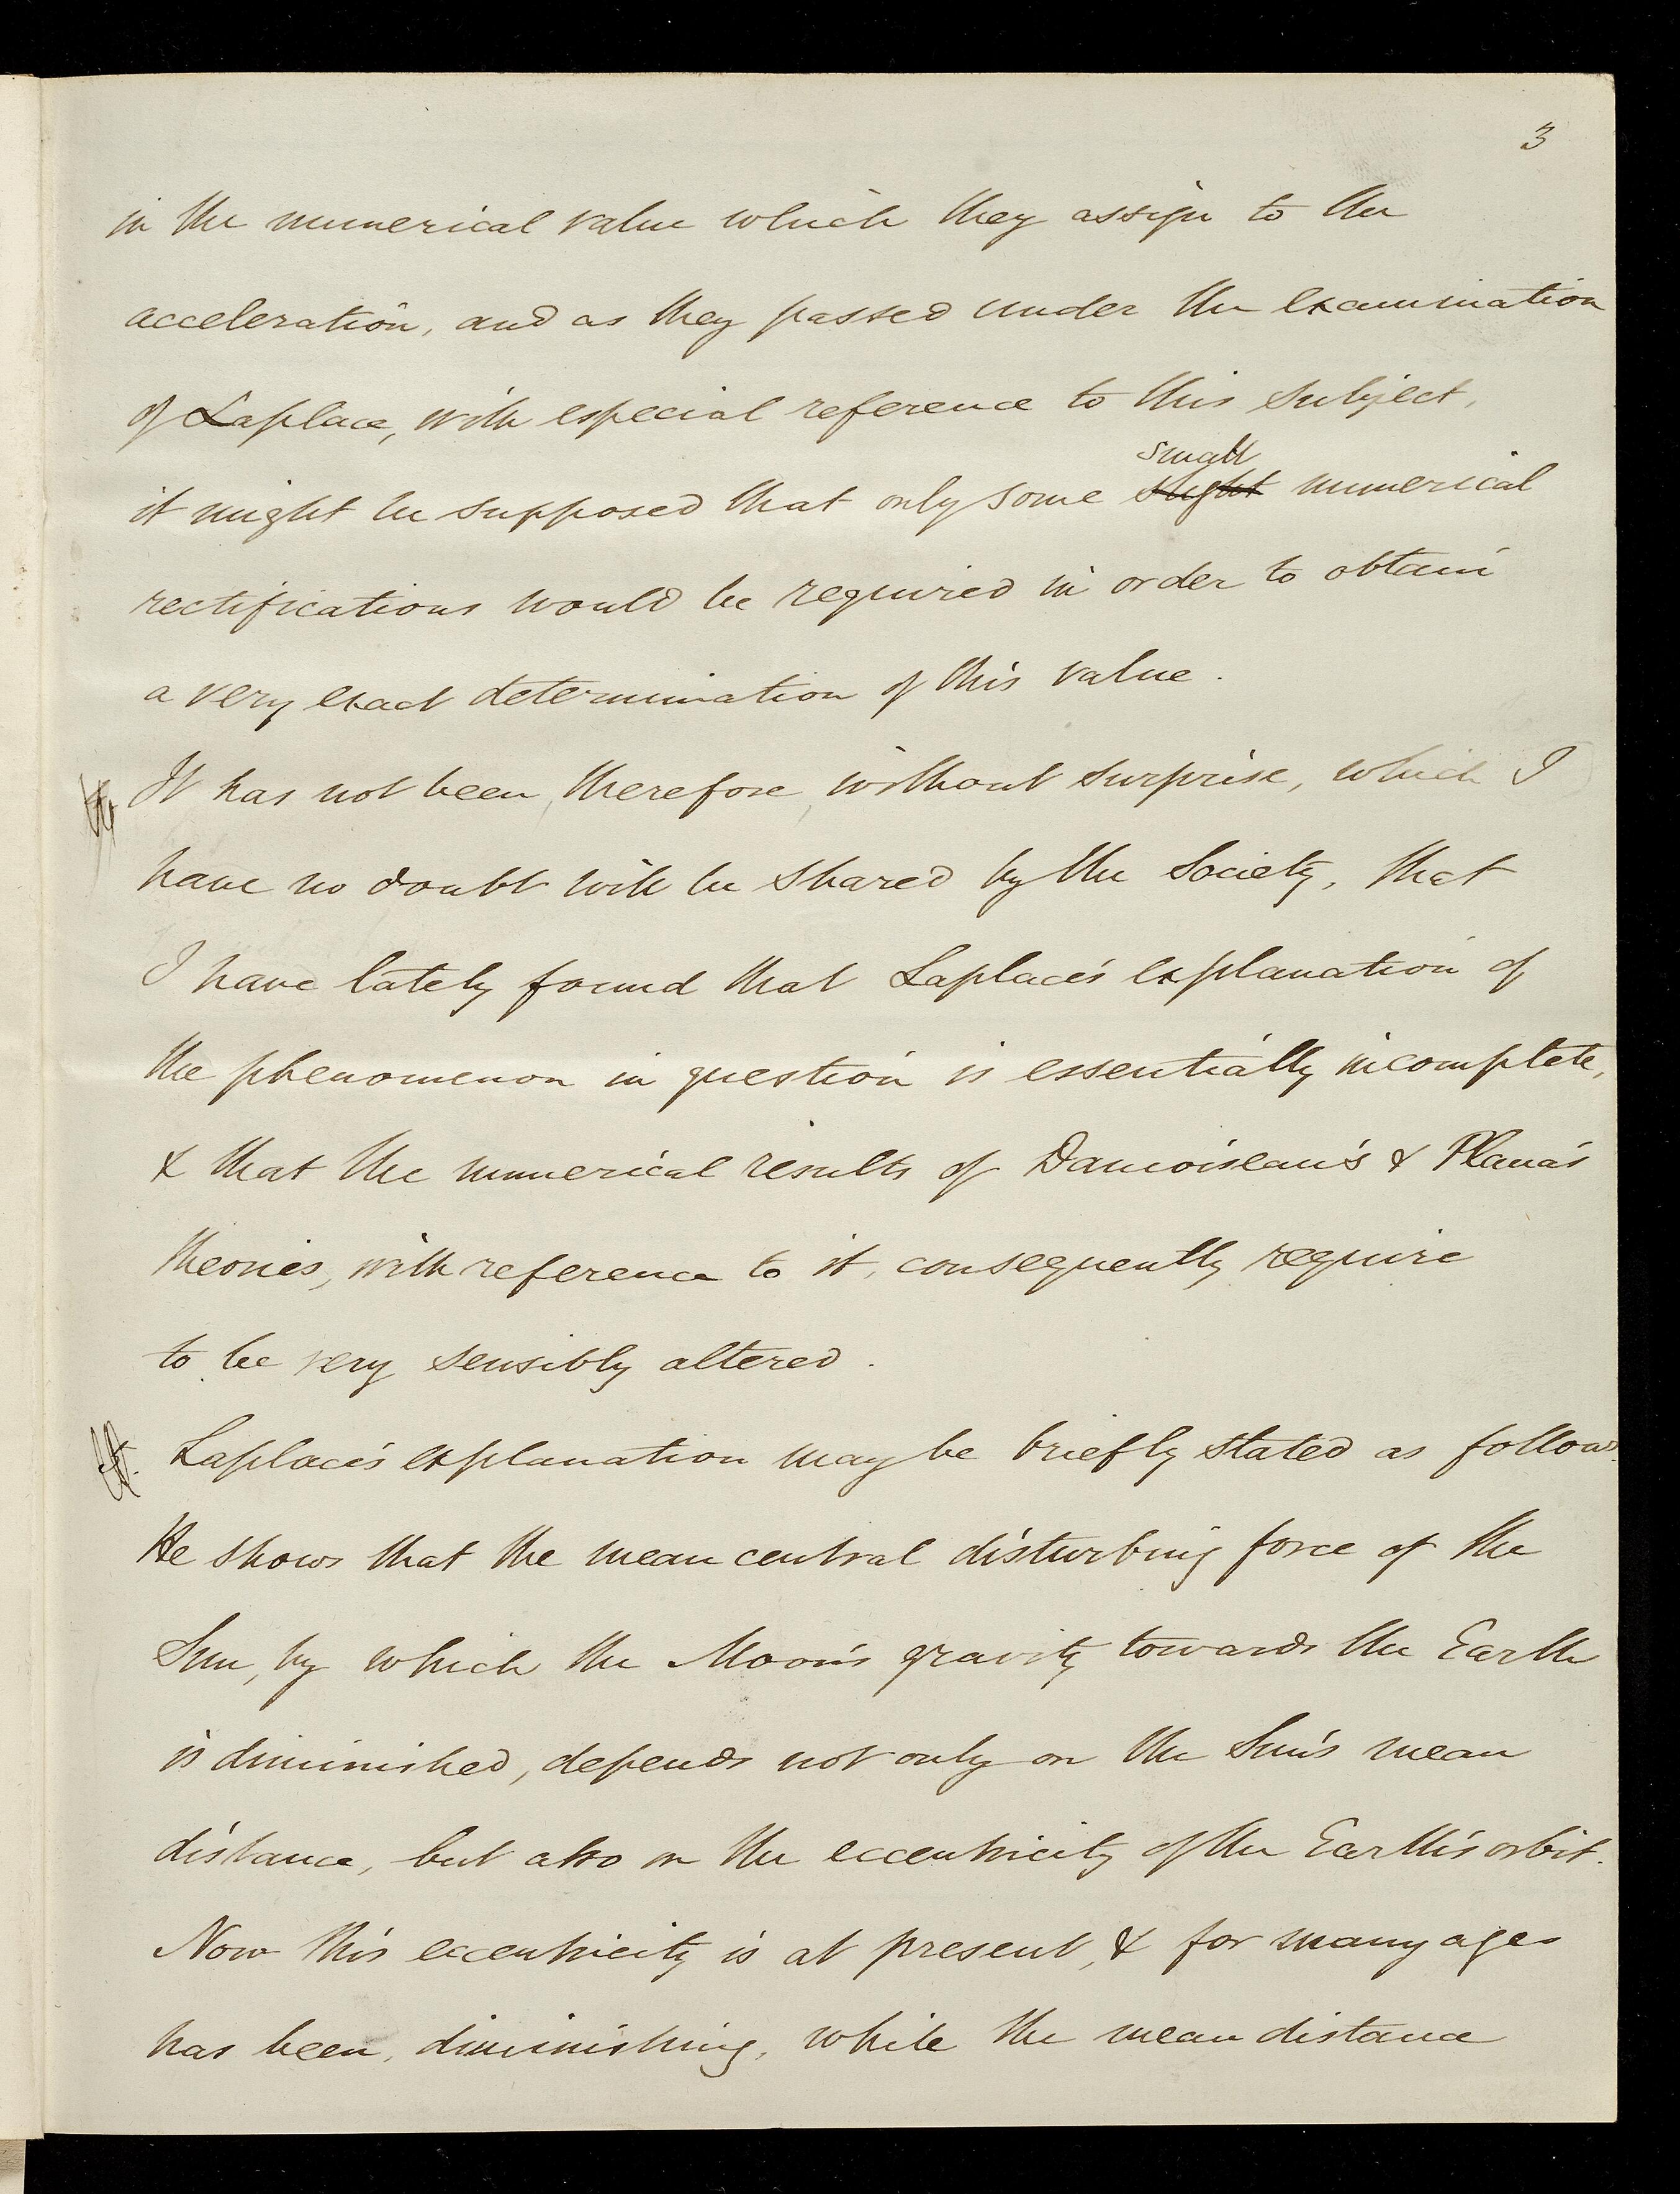 3
in the numerical value which they assign to the
acceleration, and as they passed under the examination
of Laplace, with especial reference to this subject,
small
it might be supposed that only some slight numerical
rectifications would be required in order to obtain
a very exact determination of this value.
It has not been, therefore, without surprise, which I
have no doubt will be shared by the Society, that
I have lately found that Laplace's explanation of
the phenomenon in question is essentially incomplete,
& that the numerical results of Damoiseau's & Plana's
theories, with reference to it, consequently require
to be very sensibly altered.
Laplace's explanation may be briefly stated as follows.
He shows that the mean central disturbing force of the
Sun, by which the Moon's gravity towards the Earth
is diminished, depends not only on the Sun's mean
distance, but also on the eccentricity of the Earth's orbit.
Now this eccentricity is at present, & for many ages
has been, diminishing, while the mean distance